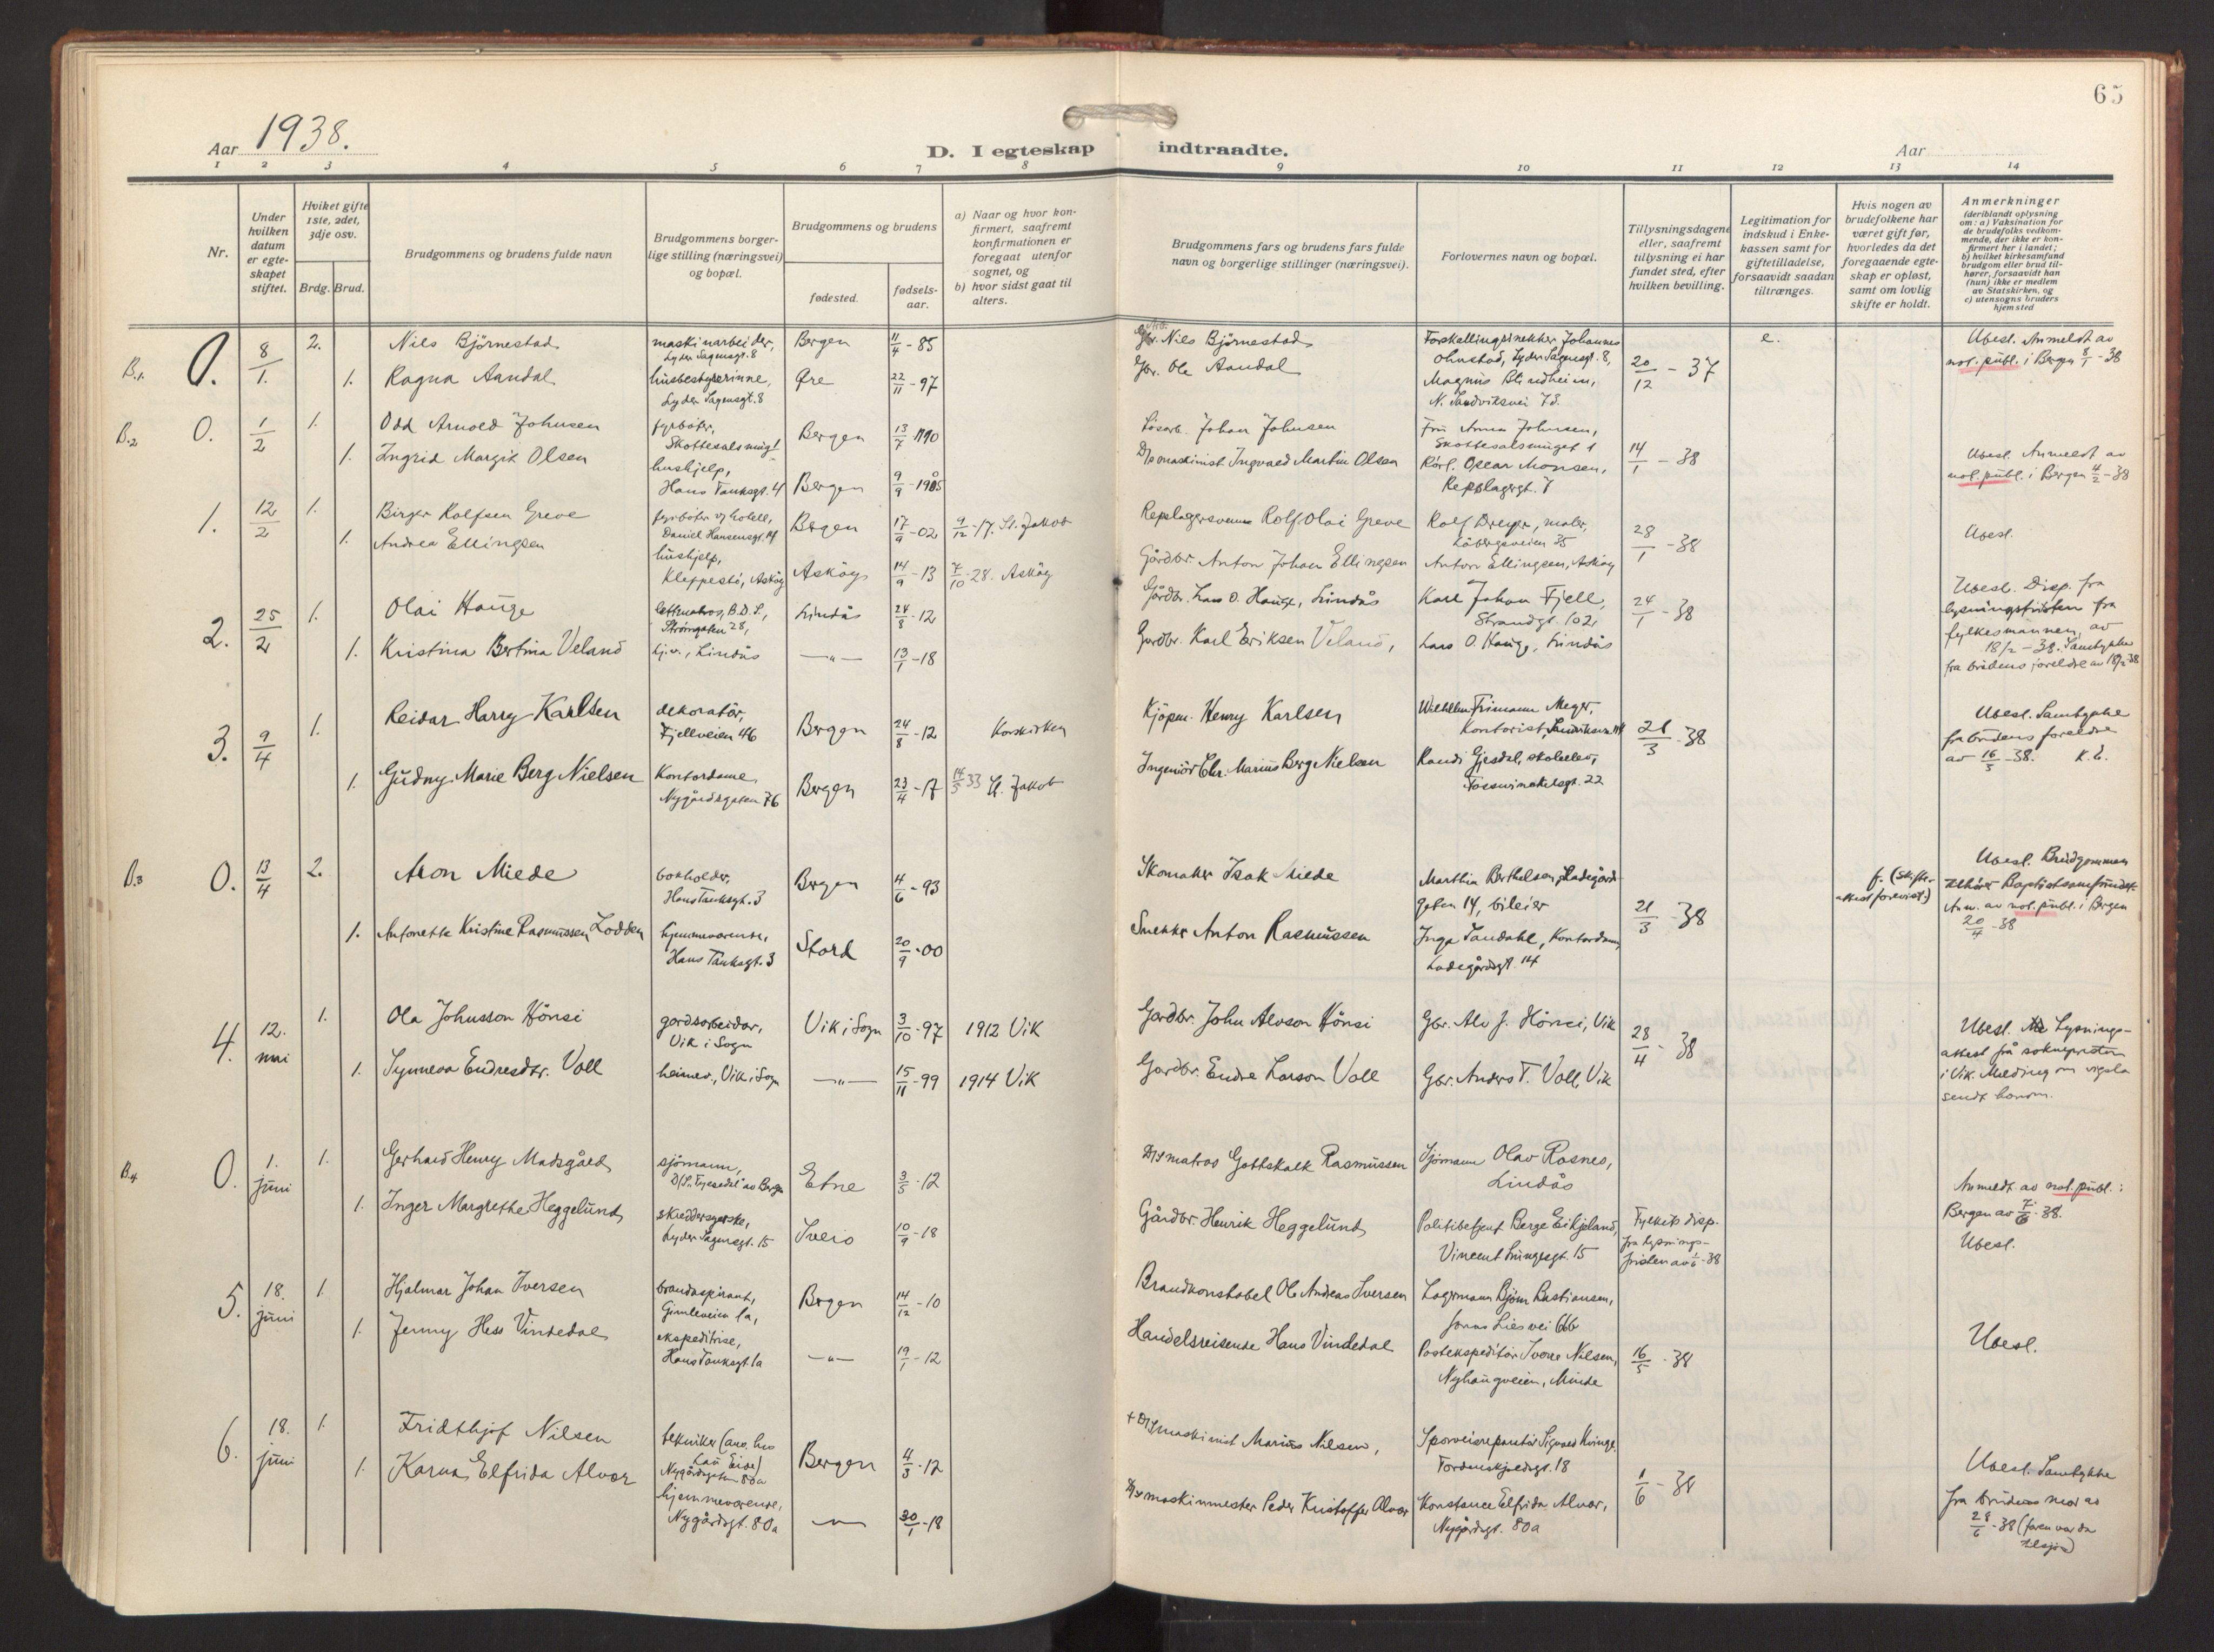 65
Aar 1938.
D. I egteskap indtraadte.
Aar
1 2 3 4 5 6 7 8 9 10 11 12 13 14
Nr.
Under hvilken datum er egte-skapet stiftet.
Hviket gifte 1ste, 2det, 3dje osv.
Brdg. Brud.
Brudgommens og brudens fulde navn
Brudgommens borger-lige stilling (næringsvei) og bopæl.
Brudgommens og brudens
fødested.
fødsels-aar.
a) Naar og hvor kon-firmert, saafremt konfirmationen er foregaat utenfor sognet, og
b) hvor sidst gaat til alters.
Brudgommens fars og brudens fars fulde navn og borgerlige stillinger (næringsvei).
Forlovernes navn og bopæl.
Tillysningsdagene eller, saafremt tillysning ei har fundet sted, efter hvilken bevilling.
Legitimation for indskud i Enke-kassen samt for giftetilladelse, forsaavidt saadan tiltrænges.
Hvis nogen av brudefolkene har været gift før, hvorledes da det foregaaende egte-skap er opløst, samt om lovlig skifte er holdt.
Anmerkninger
(deriblandt oplysning om: a) Vaksination for de brudefolks vedkom-mende, der ikke er kon-firmert her i landet; b) hvilket kirkesamfund brudgom eller brud til-hører, forsaavidt han (hun) ikke er medlem av Statskirken, og c) utensogns bruders hjemsted
B.1. 0. 8/1. 2. Nils Bjørnestad maskinarbeider, Lyder Sagensgt. 8 Bergen 11/4 - 85 Nils Bjørnestad Johannes Ohnstad, Lyder Sagensgt. 8, 20/12 - 37 e. Ubesl. Anmeldt av not. publ. i Bergen 8/1 - 38
1. Ragna Aandal husbestyrerinne, Lyder Sagensgt. 8 Øre 22/11 - 97 Gbr. Ole Aandal Magnus Blindheim, N. Sandviksvei 73.
B.2 0. 1/2 1. Odd Arnold Johnsen fyrbøter, Bergen 13/7 1910 Løsarb. Johan Johnsen Fru Anna Johnsen, 14/1 - 38 Ubesl. Anmeldt av not. publ. i Bergen 4/2 - 38
1. Ingrid Margit Olsen hushjelp, Hans Tanksgt. 4 Bergen 9/9 - 1905 Ingvald Martin Olsen Oscar Monsen, Repslagergt. 7
1. 12/2 1. Birger Rolfsen Greve fyrbøter v/ hotell, Daniel Hansensgt. 14 Bergen 17/9 - 02 9/12 - 17. St. Jakob Repslagersvenn Rolf Olai Greve Rolf Dreyer, maler, 35 28/1 - 38 Ubesl.
1. Andrea Ellingsen hushjelp, Kleppestø, Askøy Askøy 14/9 - 13 7/10 - 28. Askøy Gårdbr. Anton Johan Ellingsen Anton Ellingsen, Askøy
2. 25/2 1. Olai Hauge lettmatros, B.D.S., Strømgaten 28, Lindås 24/8 - 12 Gårdbr. Lars O. Hauge, Lindås Karl Johan Fjell, Strandgt. 102, 24/1 - 38 Ubesl. Disp. fra lysningsfristen fra fylkesmannen av 18/2 - 38. Samtykke fra brudens foreldre av 18/2 38
1. Kristina Bertina Veland hj.v., Lindås —"— 13/1 - 18 Gardbr. Karl Eriksen Veland, Lars O. Hauge, Lindås
3. 9/4 1. Reidar Harry Karlsen dekoratør, Fjellveien 46 Bergen 24/8 - 12 Korskirken Kjøpm. Henry Karlsen Wilhelm Frimann Meyer, Kontorist, 21/3 - 38 Ubesl. Samtykke fra brudens foreldre av 16/3 - 38.
1. Gudny Marie Berg Nielsen Kontordame, Nygårdsgaten 76 Bergen 23/4 - 17 14/5 33 St. Jakob Ingeniør Chr. Marius Berg Nielsen Randi Gjesdal, skoleelev, Fosswinckelsgt. 22
B.3 0. 13/4 2. Aron Miede bokholder, Hans Tanksgt. 3 Bergen 4/6 - 93 Skomaker Isak Miede Marthia Berthelsen, Ladegårds-gaten 14, bileier 21/3 - 38 f. (Skifte-attest forevist.) Ubesl. Brudgommen tilhører Baptistsamfundet. Anm. av not. publ. i Bergen 20/4 - 38
1. Antonette Kristine Rasmussen Lodden hjemmeværende, Hans Tanksgt. 3 Stord 20/9 - 00 Snekker Anton Rasmussen Inga Sandahl, Kontordame, Ladegårdsgt. 14
4. 12. mai 1. Ola Johnsson Hønsi gardsarbeidar, Vik i Sogn Vik i Sogn 3/10 - 97 1912 Vik Gardbr. John Alvson Hønsi Gbr. Alv J. Hønsi, Vik 28/4 - 38 Ubesl. Lysnings-attest frå soknepresten i Vik. Melding om vigsla sendt honom.
1. Synneva Endresdtr. Voll heimev., Vik i Sogn —"— 15/11 - 99 1914 Vik Gardbr. Endre Larson Voll Gbr. Anders T. Voll, Vik
B.4 0. 1. juni 1. Gerhard Henry Madsgård sjømann, Etne 3/5 - 12 matros Gottskalk Rasmussen Sjømann Olav Rosnes, Lindås Anmeldt av not. publ. i Bergen av 7/6 - 38. Ubesl.
1. Inger Margrethe Heggelund skreddersyerske, Lyder Sagensgt. 15 Sveio 10/9 - 18 Gårdbr. Henrik Heggelund Politibetjent Berge Eikjeland, Vincent Lungesgt. 15 Fylkets disp. fra lysnings-fristen av 1/6 - 38
5. 18. juni 1. Hjalmar Johan Iversen brandaspirant, Gimleveien 1a, Bergen 14/12 - 10 Brandkonstabel Ole Andreas Iversen Lagermann Bjørn Bastiansen, Jonas Lies vei 66b 16/5 - 38 Ubesl.
1. Jenny Hess Vindedal ekspeditrise, Hans Tanksgt. 1a —"— 19/1 - 12 Handelsreisende Hans Vindedal Postekspeditør Ivare Nilsen, Nyhaugveien, Minde
6. 18. juni 1. Fridthjof Nilsen tekniker (ans. hos Lau Eide) Nygårdsgaten 80a Bergen 4/3 - 12 maskinist Marius Nilsen, Sporveisreparatør Sigvald Kvinge, Tordenskjoldsgt. 18 1/6 - 38 Ubesl. Samtykke fra brudens mor av 28/6 - 38 (faren var da tilsjøs)
1. Karna Elfrida Alvær hjemmeværende, Nygårdsgt. 80a —"— 30/1 - 18 maskinmester Peder Kristoffer Alvær Konstance Elfrida Alvær, Nygårdsgt. 80a